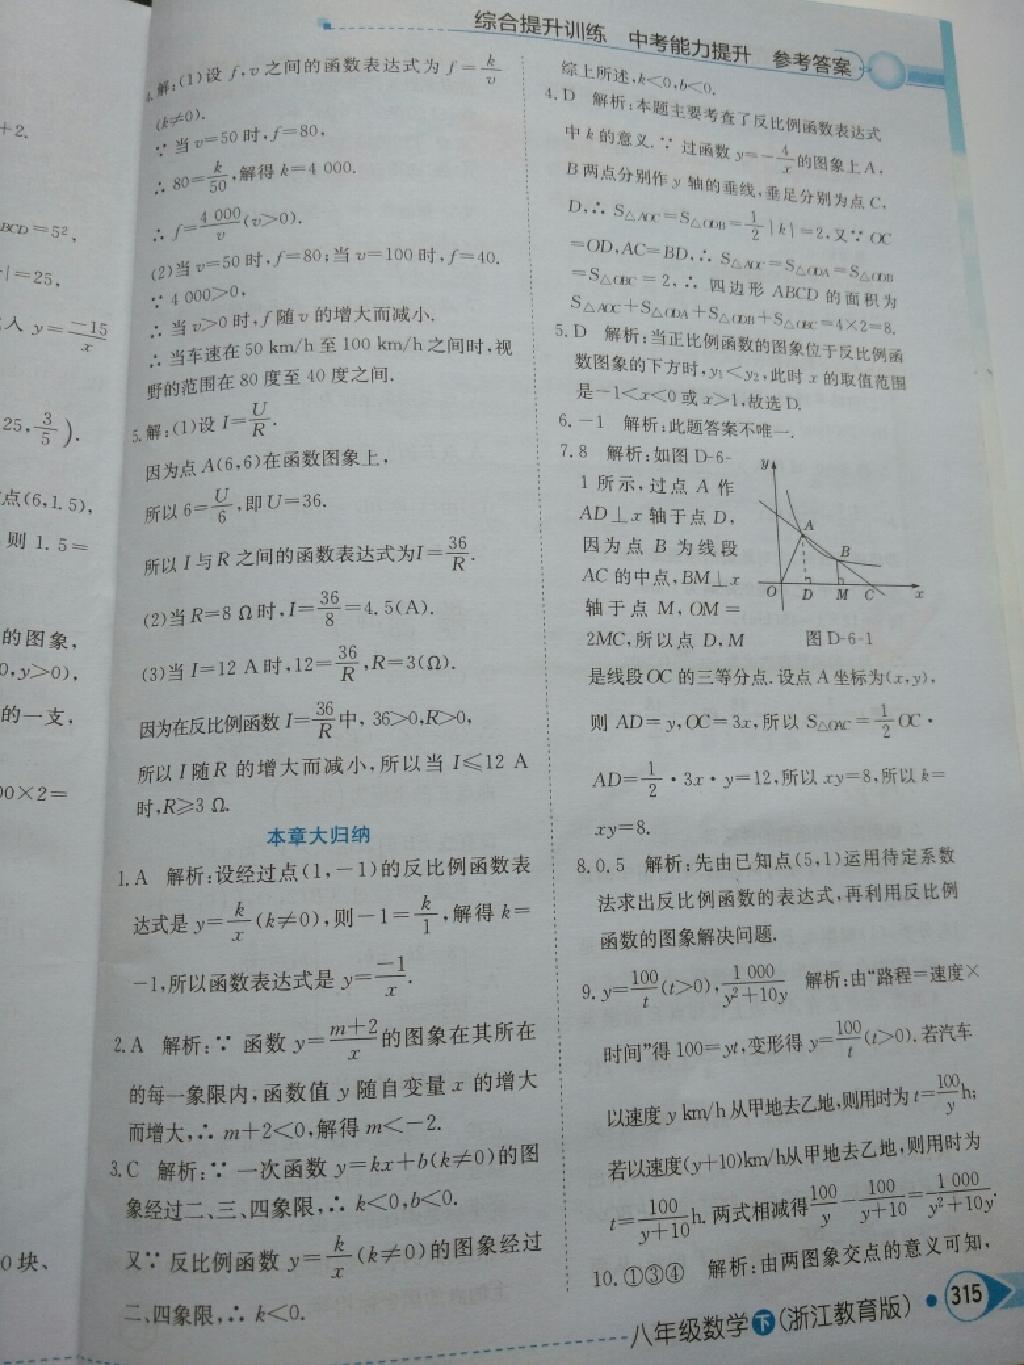 综合提升训练 中考能力提升 参考答案
+2.
BCD=5²,
-|=25,
入 y=-15/x
25,3/5).
点(6,1.5),
则 1.5=
的图象,
0,y>0),
的一支,
00×2=
0块、
4.解:(1)设 f,v 之间的函数表达式为 f=k/v
(k≠0).
∵当 v=50 时,f=80,
∴80=k/50,解得 k=4 000.
∴f=4 000/v(v>0).
(2)当 v=50 时,f=80;当 v=100 时,f=40.
∵4 000>0,
∴当 v>0 时,f 随 v 的增大而减小.
∴当车速在 50 km/h 至 100 km/h 之间时,视
野的范围在 80 度至 40 度之间.
5.解:(1)设 I=U/R.
因为点 A(6,6)在函数图象上,
所以 6=U/6,即 U=36.
所以 I 与 R 之间的函数表达式为I=36/R.
(2)当 R=8 Ω 时,I=36/8=4.5(A).
(3)当 I=12 A 时,12=36/R,R=3(Ω).
因为在反比例函数 I=36/R中, 36>0,R>0,
所以 I 随 R 的增大而减小,所以当 I≤12 A
时,R≥3 Ω.
本章大归纳
1.A 解析:设经过点(1,-1)的反比例函数表
达式是 y=k/x(k≠0),则-1=k/1,解得 k=
-1,所以函数表达式是 y=-1/x.
2.A 解析:∵ 函数 y=m+2/x的图象在其所在
的每一象限内,函数值 y 随自变量 x 的增大
而增大,∴ m+2<0,解得 m<-2.
3.C 解析:∵ 一次函数 y=kx+b(k≠0)的图
象经过二、三、四象限,∴ k<0,b<0.
又∵ 反比例函数 y=k/x(k≠0)的图象经过
二、四象限,∴ k<0.
综上所述,k<0,b<0.
4.D 解析:本题主要考查了反比例函数表达式
中 k 的意义.∵ 过函数 y=-4/x的图象上 A,
B 两点分别作 y 轴的垂线,垂足分别为点 C,
D,∴ S△AOC=S△ODB=1/2|k|=2,又∵ OC
=OD,AC=BD,∴ S△AOC=S△ODA=S△ODB
=S△OBC=2,∴ 四边形 ABCD 的面积为
S△AOC+S△ODA+S△ODB+S△OBC=4×2=8.
5.D 解析:当正比例函数的图象位于反比例函
数图象的下方时,y₁<y₂,此时 x 的取值范围
是-1<x<0 或 x>1,故选 D.
6.-1 解析:此题答案不唯一.
7.8 解析:如图 D-6-
1 所示,过点 A 作
AD⊥x 轴于点 D,
因为点 B 为线段
AC 的中点,BM⊥x
轴于点 M,OM=
2MC,所以点 D,M
y
A
B
O D M C x
图 D-6-1
是线段 OC 的三等分点.设点 A 坐标为(x,y),
则 AD=y,OC=3x,所以 S△OAC=1/2OC·
AD=1/2·3x·y=12,所以 xy=8,所以 k=
xy=8.
8.0.5 解析:先由已知点(5,1)运用待定系数
法求出反比例函数的表达式,再利用反比例
函数的图象解决问题.
9.y=100/t(t>0),1 000/y²+10y 解析:由“路程=速度×
时间”得 100=yt,变形得 y=100/t(t>0).若汽车
以速度 y km/h 从甲地去乙地,则用时为 t=100/y h;
若以速度(y+10)km/h从甲地去乙地,则用时为
t=100/y+10 h.两式相减得100/y-100/y+10=1 000/y²+10y.
10.①③④ 解析:由两图象交点的意义可知,
八年级数学下(浙江教育版) 315